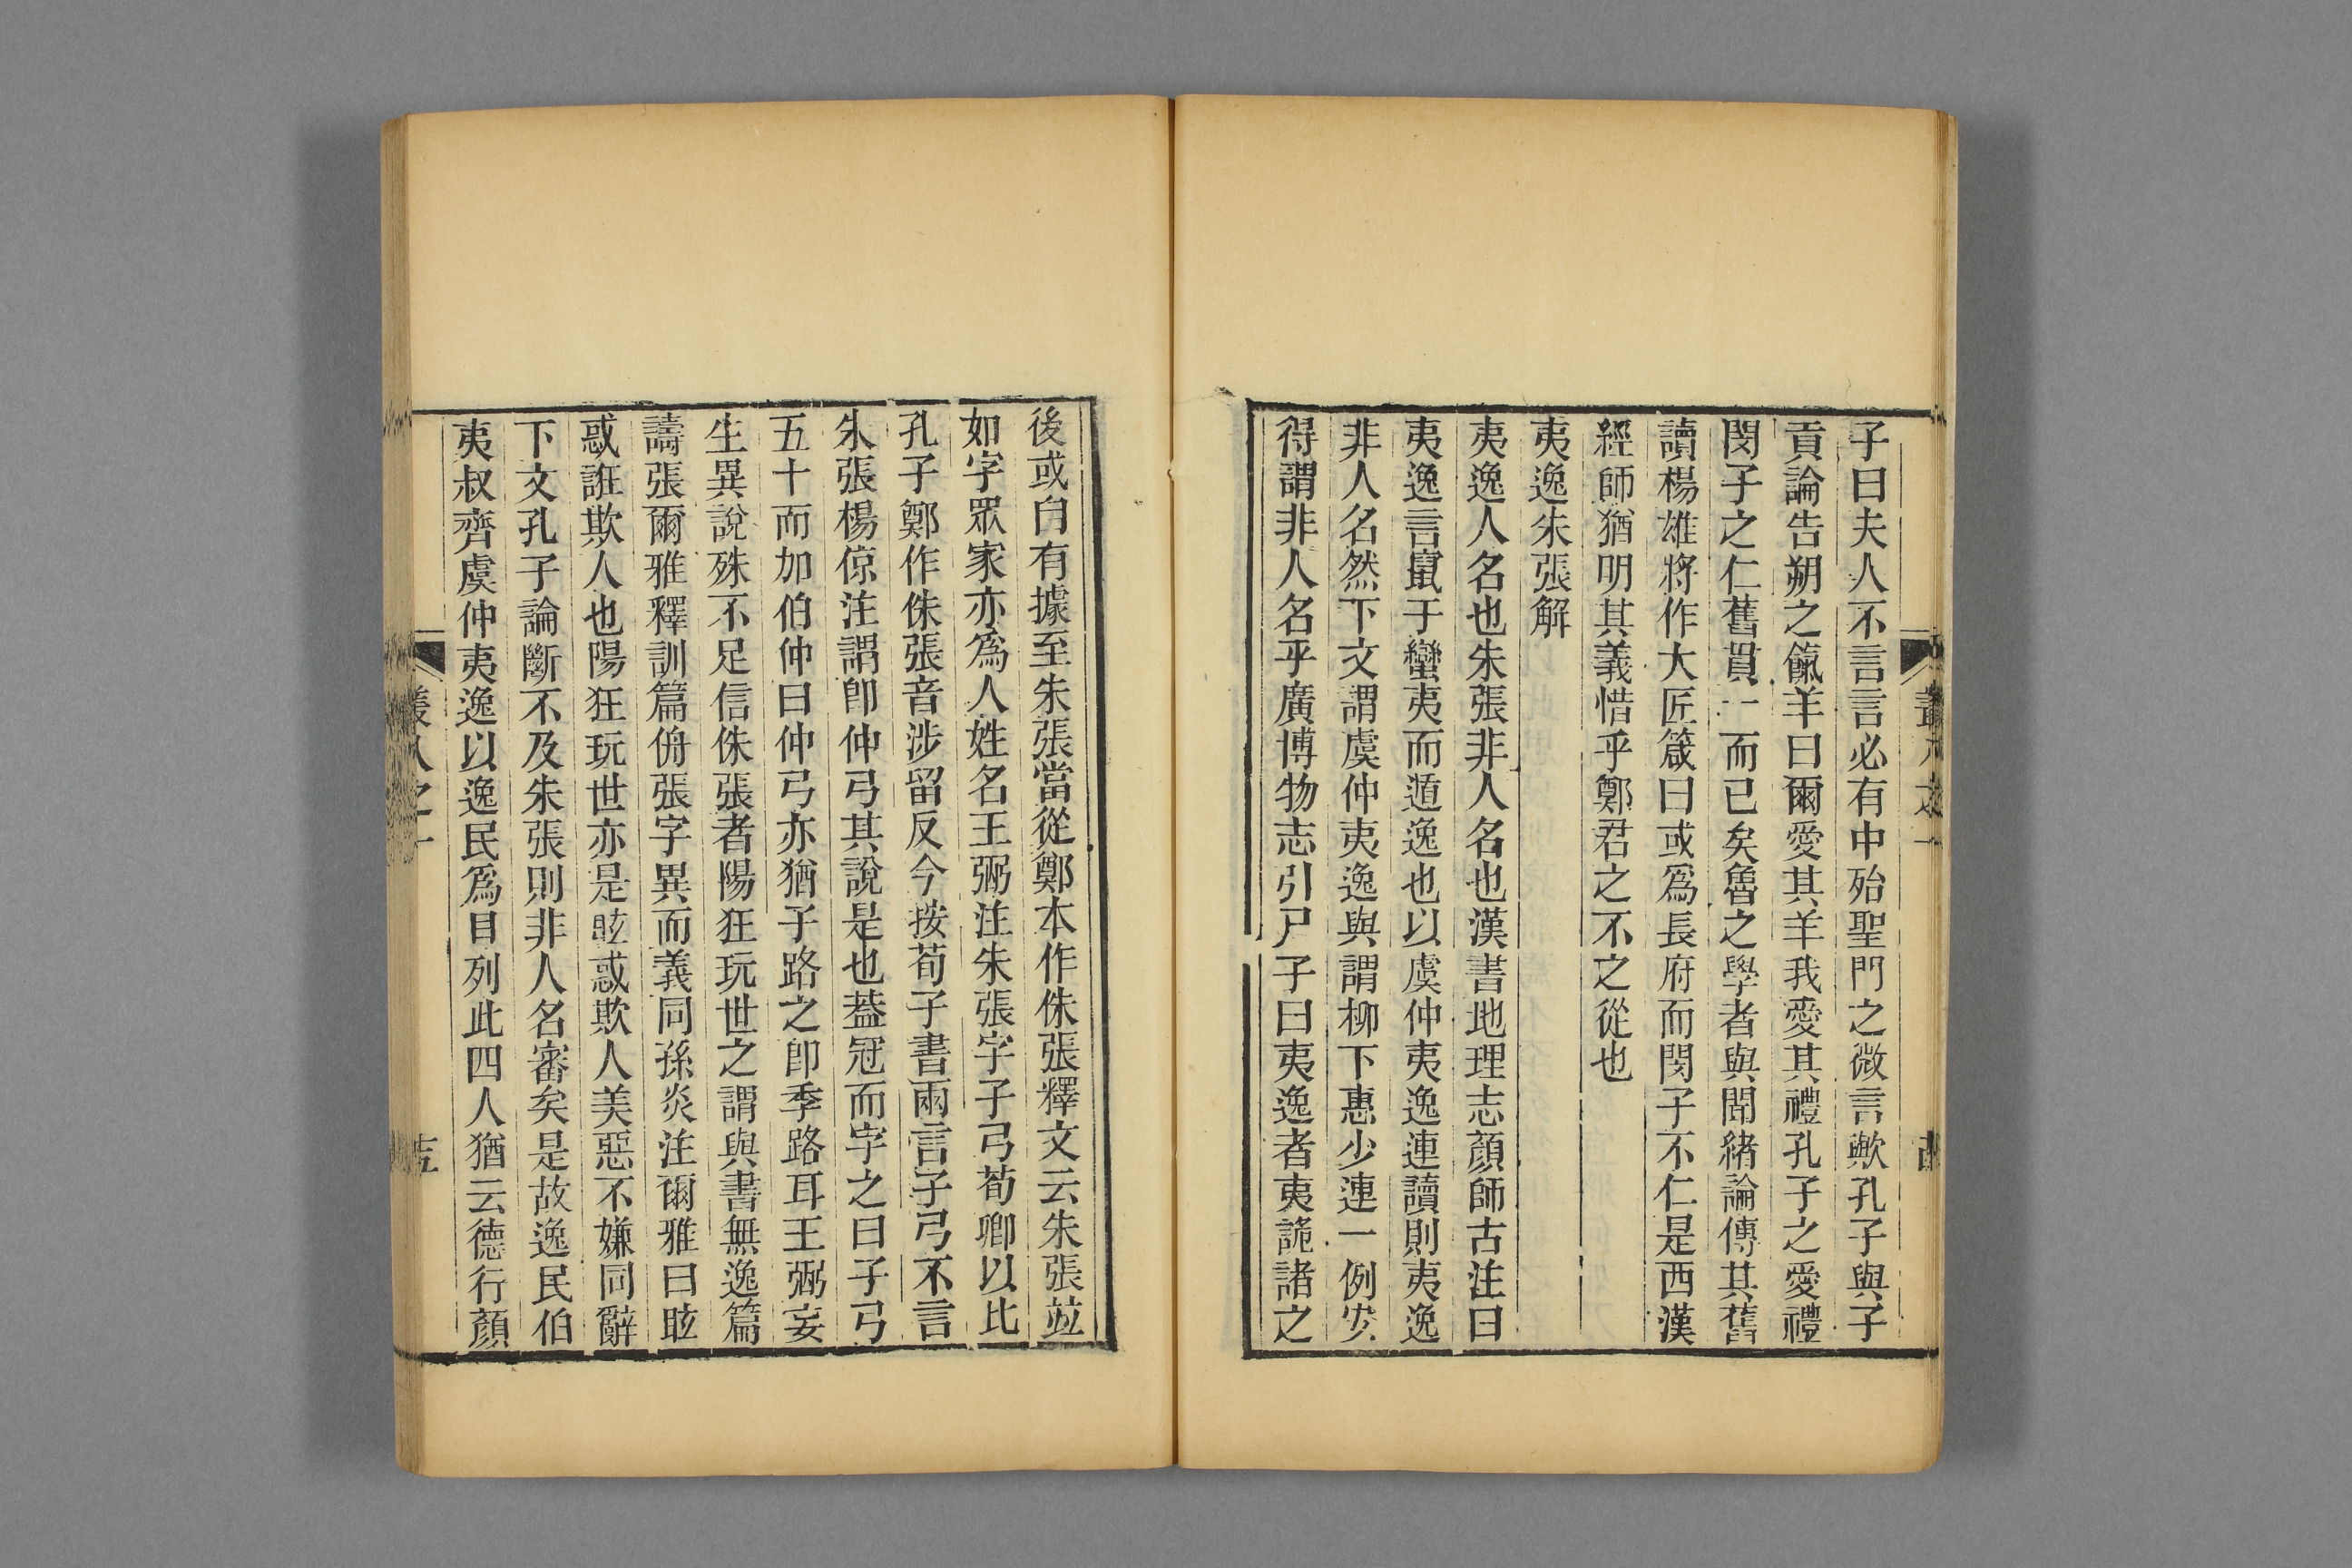 子曰夫人不言言必有中殆聖門之微言歟孔子與子
貢論告朔之餼羊曰爾愛其羊我愛其禮孔子之愛禮
閔子之仁舊貫一而已矣魯之學者與聞緒論傳其舊
讀楊雄將作大匠箴曰或爲長府而閔子不仁是西漢
經師猶明其義惜乎鄭君之不之從也
夷逸朱張解
夷逸人名也朱張非人名也漢書地理志顏師古注曰
夷逸言竄于蠻夷而遁逸也以虞仲夷逸連讀則夷逸
非人名然下文謂虞仲夷逸與謂柳下惠少連一例安
得謂非人名乎廣博物志引尸子曰夷逸者夷詭諸之
後或自有據至朱張當從鄭本作侏張釋文云朱張竝
如字眾家亦爲人姓名王弼注朱張字子弓荀卿以比
孔子鄭作侏張音涉留反今按荀子書兩言子弓不言
朱張楊倞注謂卽仲弓其說是也葢冠而字之曰子弓
五十而加伯仲曰仲弓亦猶子路之卽季路耳王弼妄
生異說殊不足信侏張者陽狂玩世之謂與書無逸篇
譸張爾雅釋訓篇侜張字異而義同孫炎注爾雅曰眩
惑誑欺人也陽狂玩世亦是眩惑欺人美惡不嫌同辭
下文孔子論斷不及朱張則非人名審矣是故逸民伯
夷叔齊虞仲夷逸以逸民爲目列此四人猶云德行顏